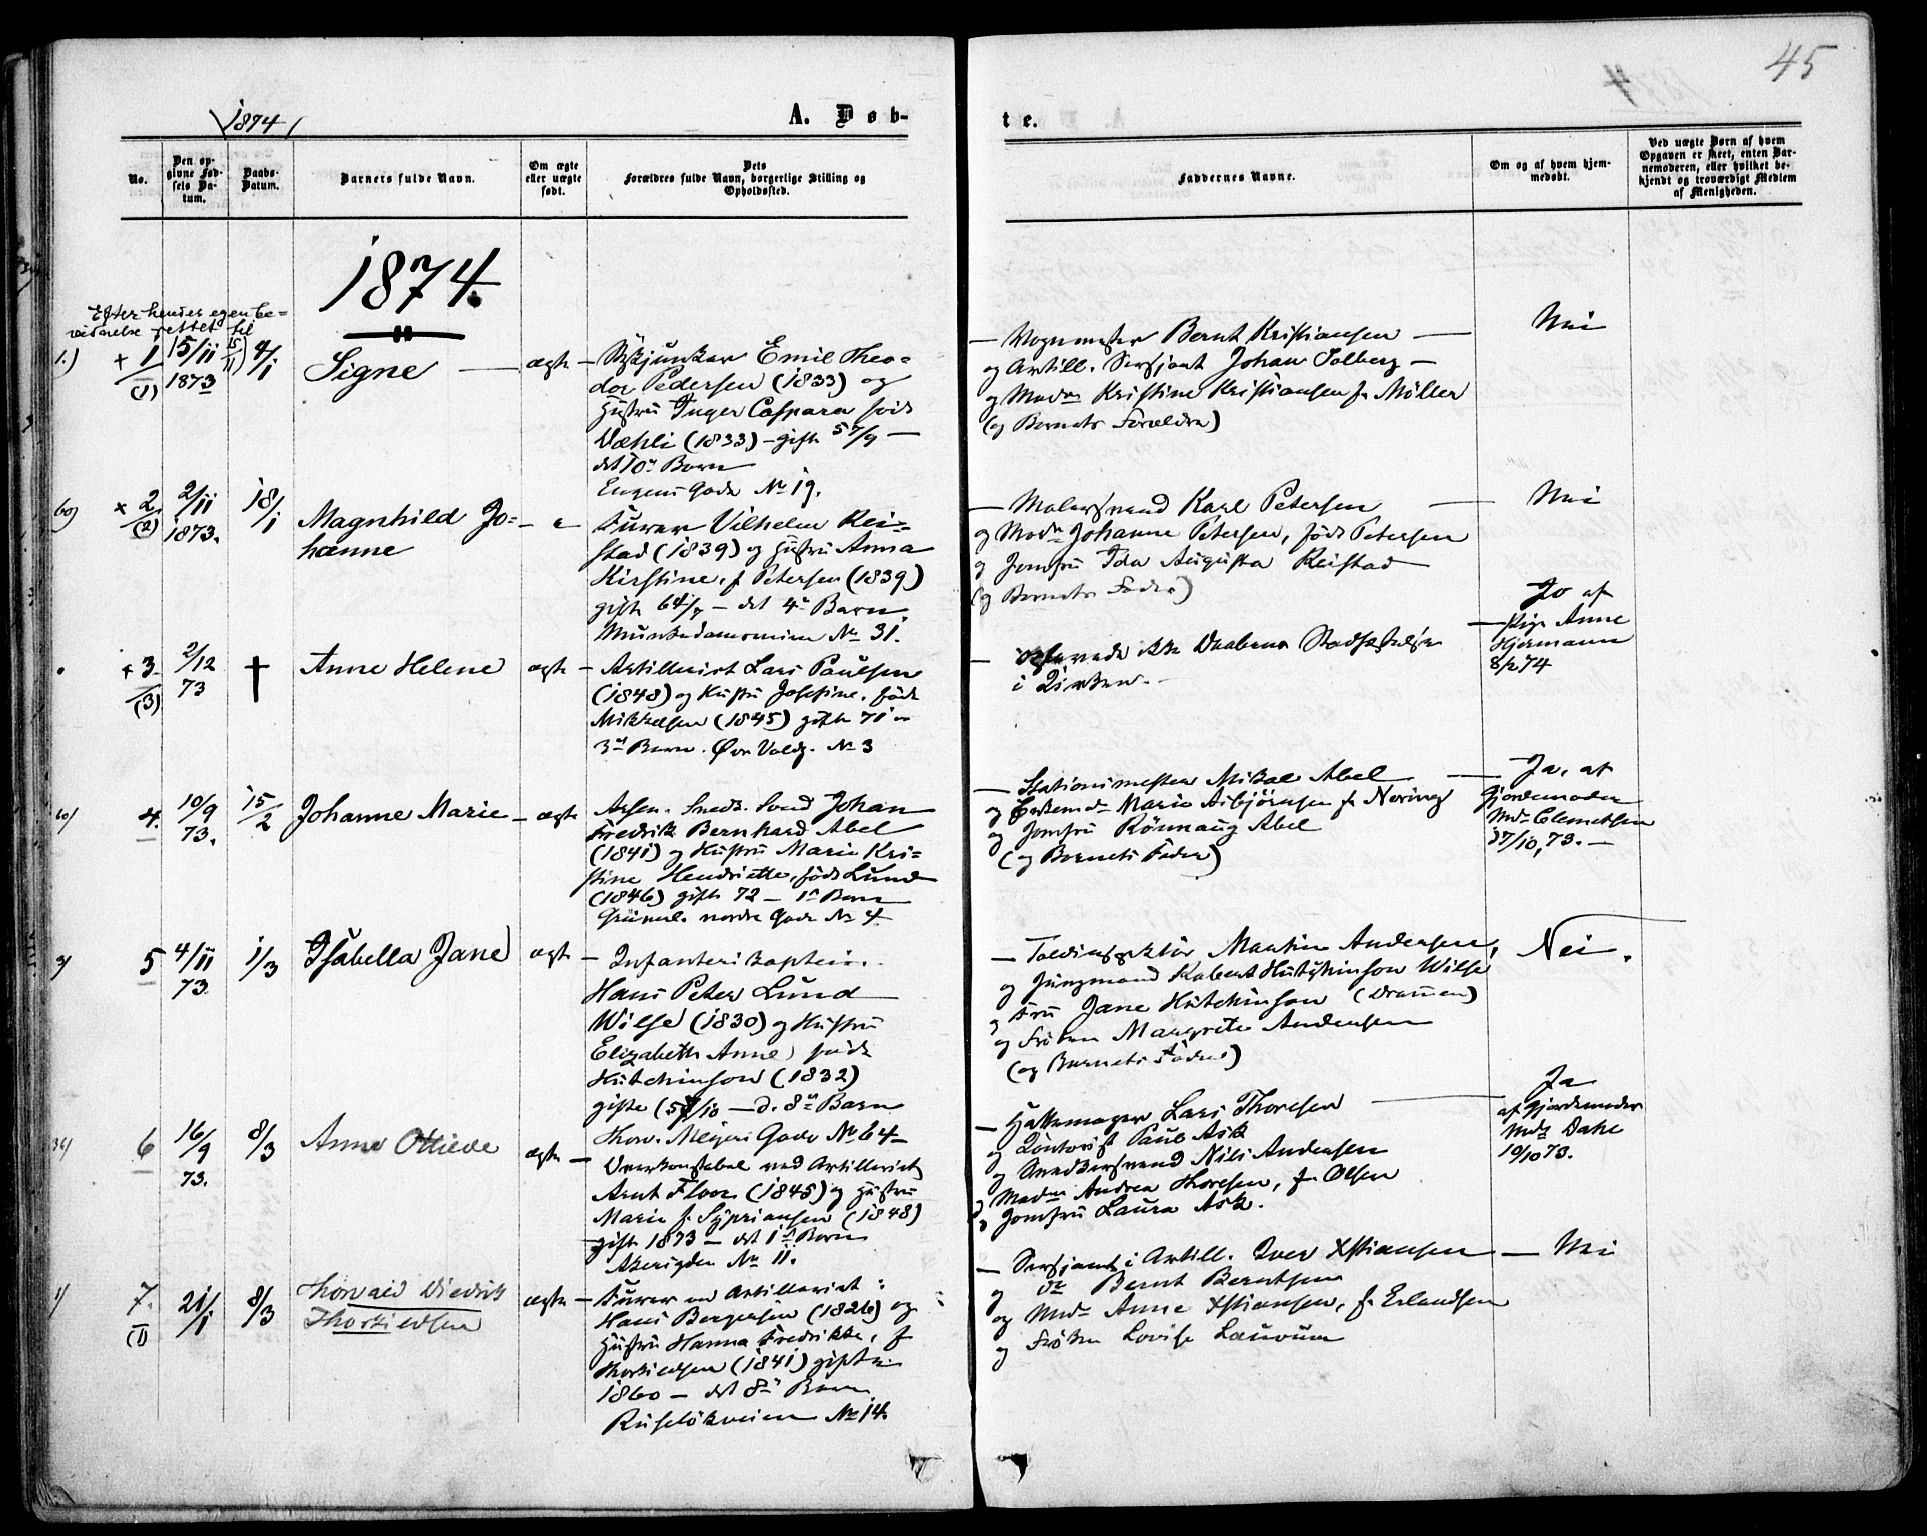 45
1874
A. Døb-
te.
No.
Den op-
givne Fød-
sels Da-
tum.
Daabs-
Datum.
Barnets fulde Navn.
Om ægte
eller uægte
født.
Dets
Forældres fulde Navn, borgerlige Stilling og
Opholdssted.
Faddernes Navne.
Om og af hvem hjem-
medøbt.
Ved uægte Børn af hvem
Opgaven er skeet, enten Bar-
nemoderen, eller hvilket be-
kjendt og troværdigt Medlem
af Menigheden.
1874.
Efter hendes egen be-
vidnelse rettet til 15/11
1.)
+ 1
(1)
15/11
1873
4/1
Signe
ægte
Emil Theo-
dor Pedersen (1833) og
Hustru Inger Caspara født
Dæhli (1833) - gift 57/9 -
det 10de Barn
Eugenis Gade No 19.
- Vognmester Bernt Kristiansen -
og Artill. Sersjant Johan Solberg -
og Madm Kristine Kristiansen f. Møller
(og Barnets Forældre)
Nei
60)
+ 2.
(2)
2/11
1873.
18/1
Magnhild Jo-
hanne
Furer Vilhelm Rei-
stad (1839) og Hustru Anna
Kirstine, f Petersen (1839)
gift 64/7 - det 4de Barn
Munkedamsveien No 31.
- Malersvend Karl Petersen
og Mad. Johanne Petersen, født Petersen
og Jomfru Ida Augusta Reistad
(og Barnets Fader)
Nei
+ 3
(3)
2/12
73
†
Anne Helene
ægte
- Artillerist Lars Paulsen
(1848) og Hustru Josefine, født
Mikkelsen (1845) gift 71 -
3de Barn. Øvr Voldg. No 3
- oplevede ikke Daabens Stadfæstelse
i Kirken. -
Jo af
Pige Anne
Hjermann
8/2 74
60)
4.
10/9
73.
15/2
Johanne Marie
ægte
Arsen. Sned. Svend Johan
Fredrik Bernhard Abel
(1841) og Hustru Marie Kri-
stine Henriette, født Lund
(1846) gift 72 - 1ste Barn
Grünerl. nordre Gade No 4
- Stationsmester Mikal Abel
og Enkemd. Marie Asbjørnsen f. Nering
og Jomfru Rønnaug Abel
(og Barnets Fader)
Ja, af
Gjordemoder
Md. Clemetsen
, 73. -
3)
5
4/11
73
1/3
Isabella Jane
ægte
- Infanterikaptein
Hans Peter Lund
Wilse (1830) og Hustru
Elizabeth Anne, født
Hutchinson (1832)
gifte - d. 8de Barn
Thorv. Meyers Gade No 64
- Toldinspektør Martin Andersen,
og Jungmand Robert Hutchinson Wilse
og Fru Jane Hutchinson (Drammen)
og Frøken Margrete Andersen
(og Barnets Fader)
Nei.
6
16/9
73.
8/3
Anne Ottiede
ægte
Overkonstabel ved Artilleriet
Arnt Floor (1845) og Hustru
Marie f. Sypriansen (1848)
gift 1873 - det 1ste Barn
Akerigden No 11.
- Hattemager Lars Thoresen
og Kontorist Paul Ask
og Snedkersvend Nils Andersen
og Madm Andrea Thoresen, f. Olsen
og Jomfru Laura Ask.
Ja
af Gjordemoder
Md. Dahl
19/10 73.
1)
7.
(1)
21/1
8/3
Thorvald Diedrik
Thorkildsen
ægte
- Furer ved Artilleriet:
Hans Bergersen (1826) og
Hustru Hanna Fredrikke, f
Thorkildsen (1841) gifte
1860 - det 8de Barn
Ruseløkveien No 14.
- Sersjant i Artill. Iver Xstiansen
og do Bernt Berntsen
og Md. Anne Xstiansen, f. Erlandsen
og Frøken Lovise Lauvum
- Nei